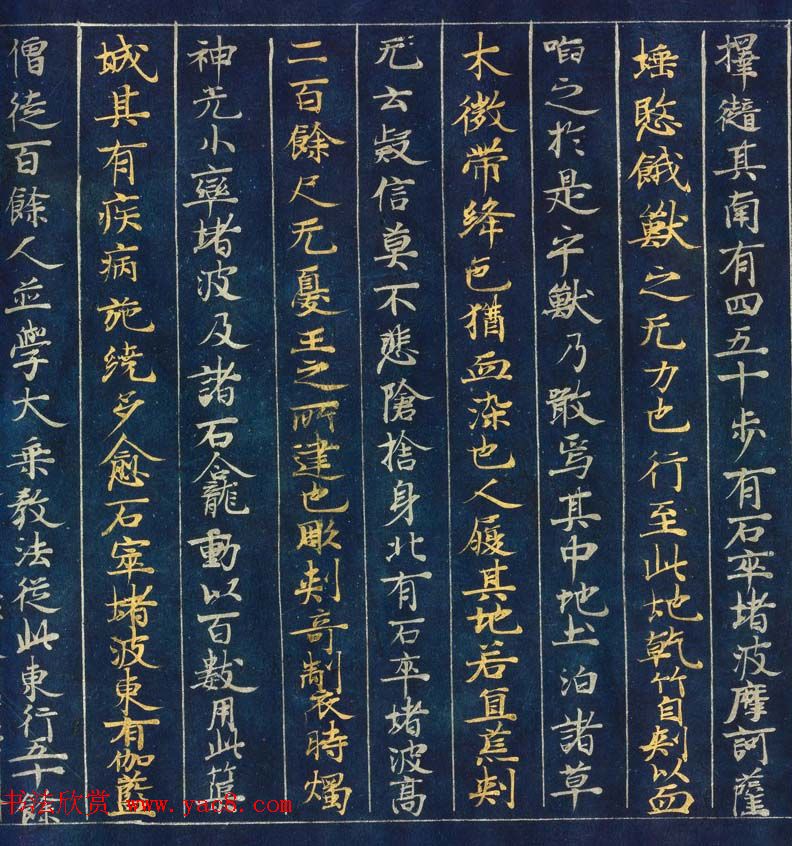 擇薩其南有四五十步有石卒堵波摩訶薩
埵愍餓獸之无力也行至此地乾竹自刺以血
啗之於是乎獸乃敢焉其中地土洎諸草
木微帶絳色猶血染也人履其地若負芒刺
无云疑信莫不悲愴捨身北有石卒堵波高
二百餘尺无憂王之所建也彫刻奇制於時燭
神光小窣堵波及諸石龕動以百數用此筮
城其有疾病旋繞多愈石窣堵波東有伽藍
僧徒百餘人並學大乘教法從此東行五十餘
书法欣赏 www.yac8.com